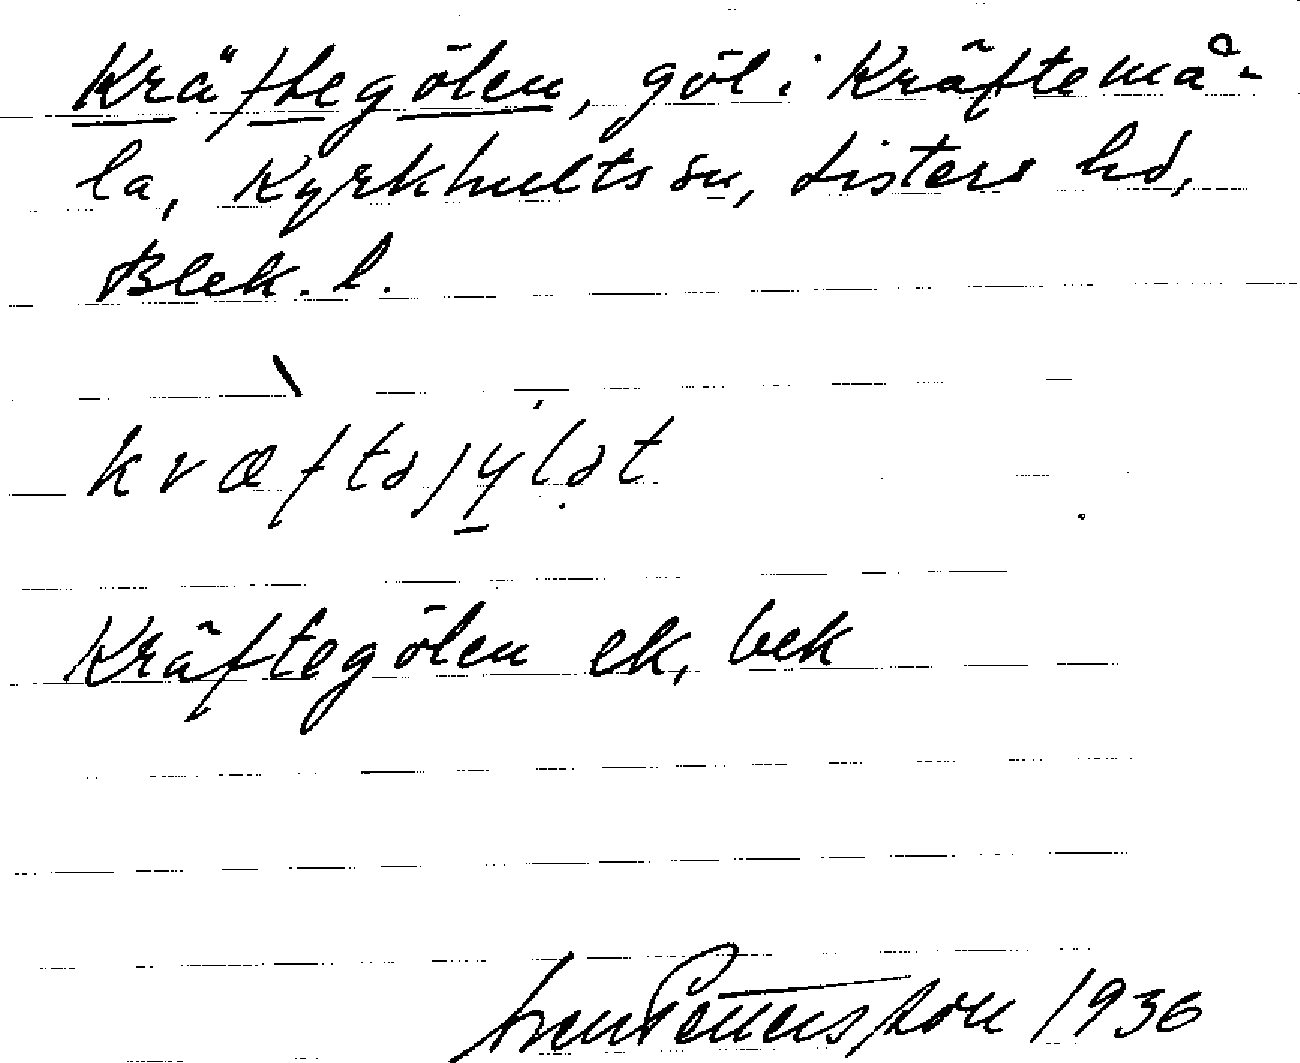 Kräftegölen, göl i Kräftemå-
la, Kyrkhults sn, Listers hd,
Blek. l.
kvæftəjylət
Kräftegölen ek, bek
Sven Pettersson 1936